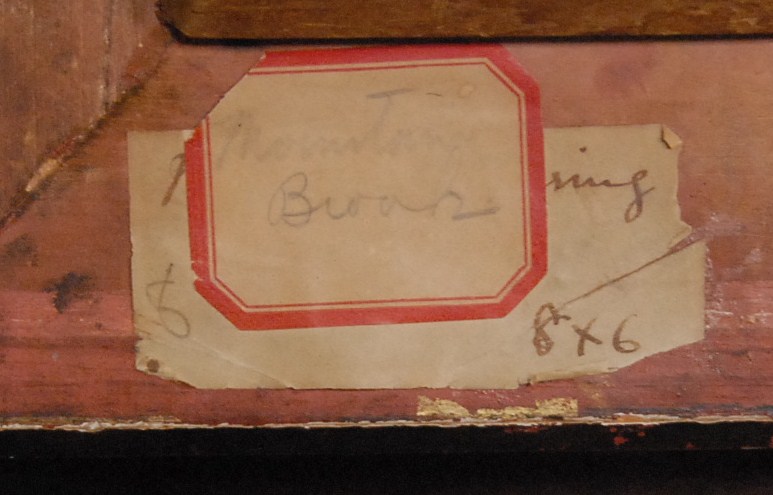 Mountain
Brook
ring
8 x 6